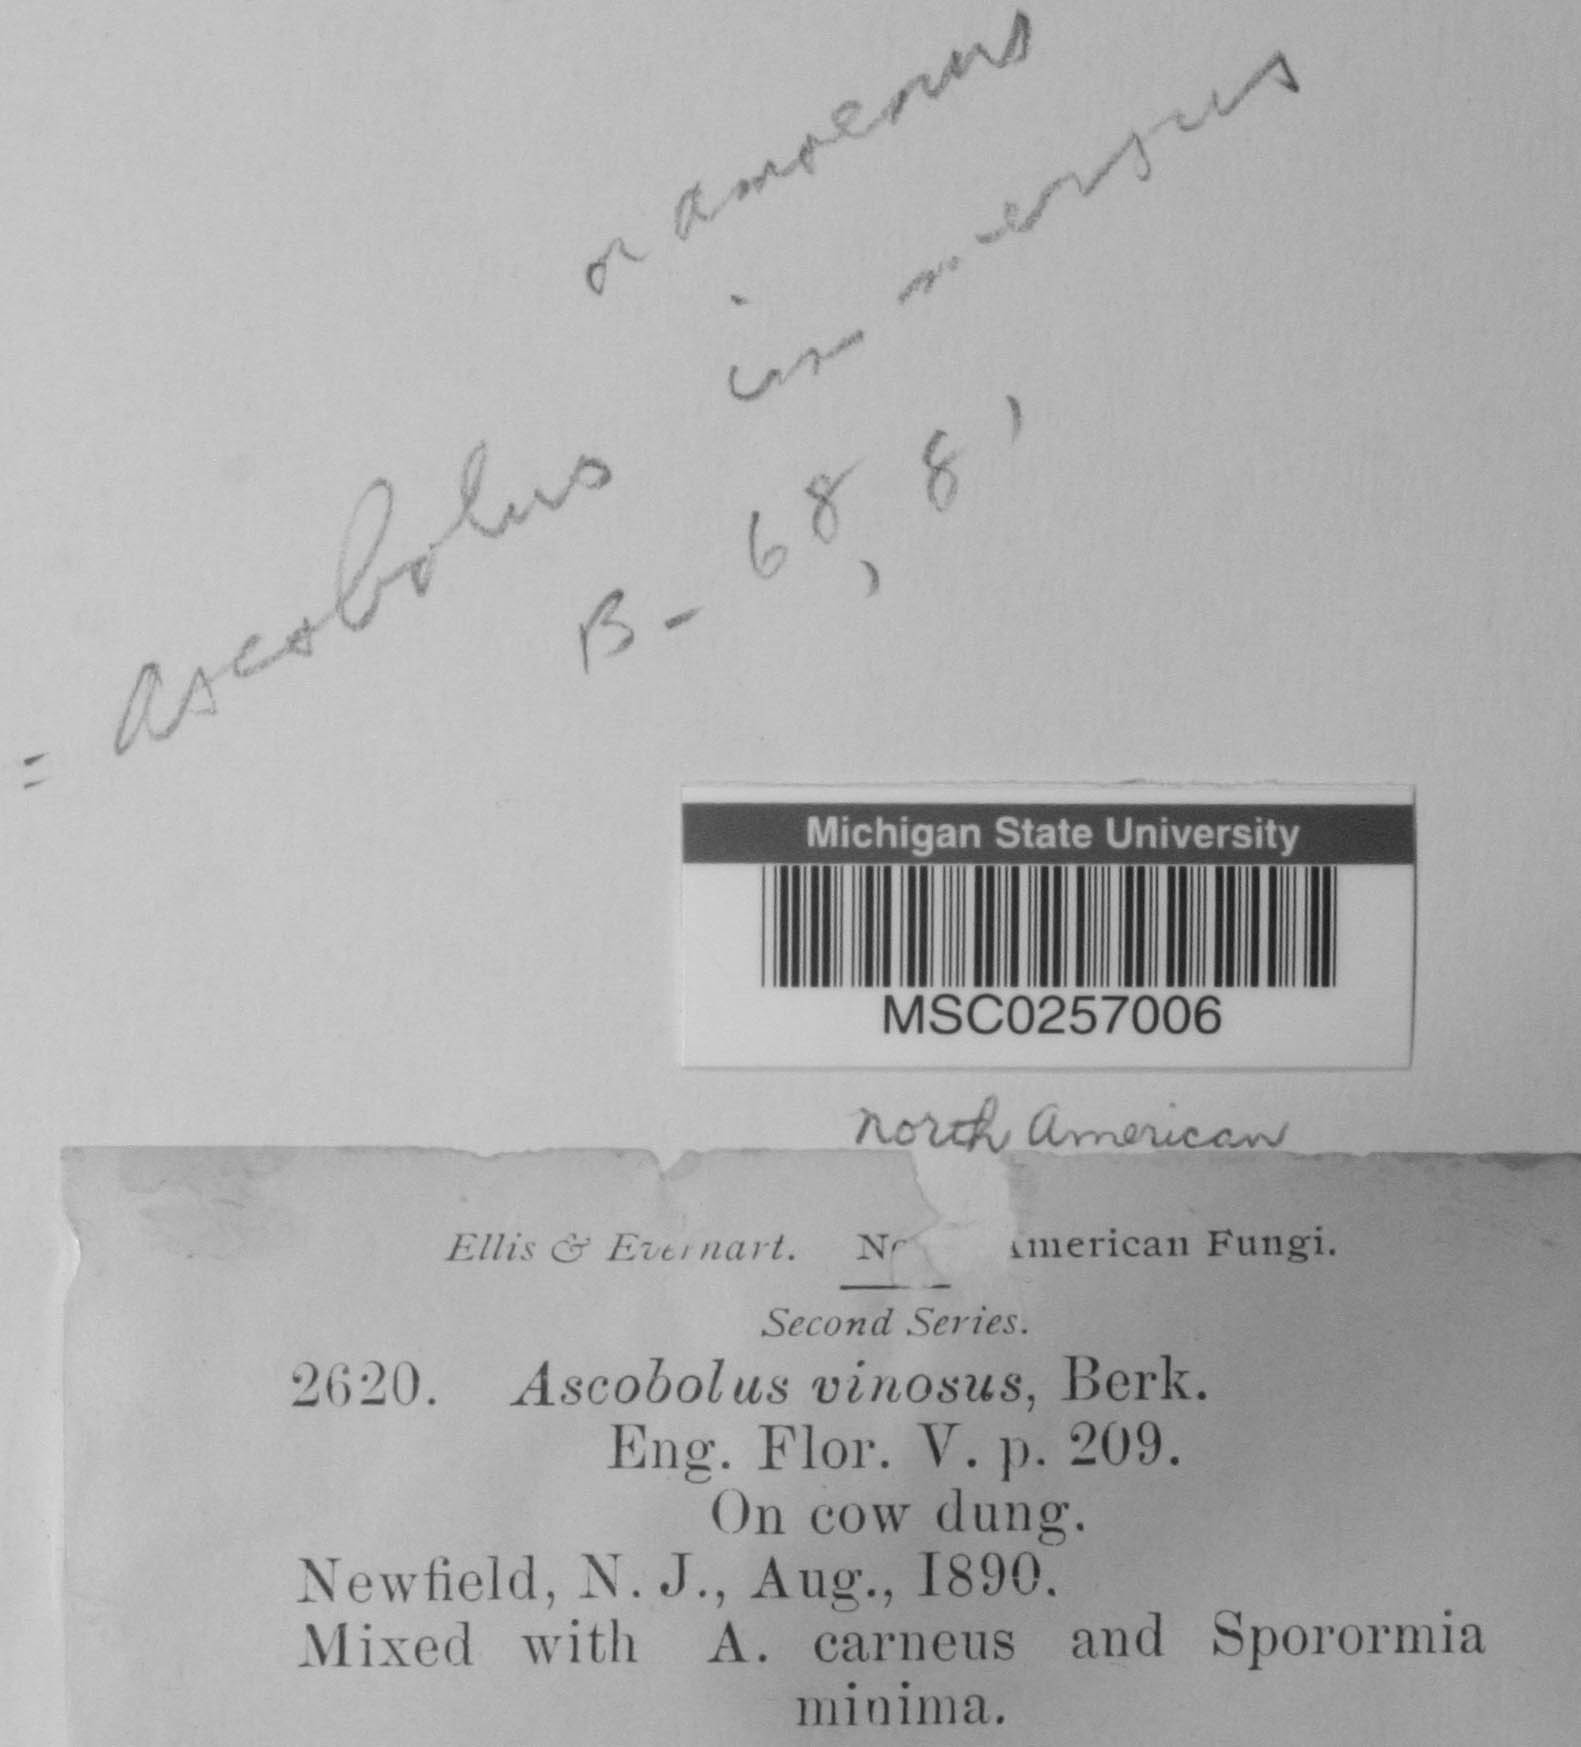 or amoenus
= Ascobolus immersus
B - 68, 8'
Michigan State University
MSC0257006
North American
Ellis & Everhart. No American Fungi.
Second Series.
2620. Ascobolus vinosus, Berk.
Eng. Flor. V. p. 209.
On cow dung.
Newfield, N. J., Aug., 1890.
Mixed with A. carneus and Sporormia
minima.